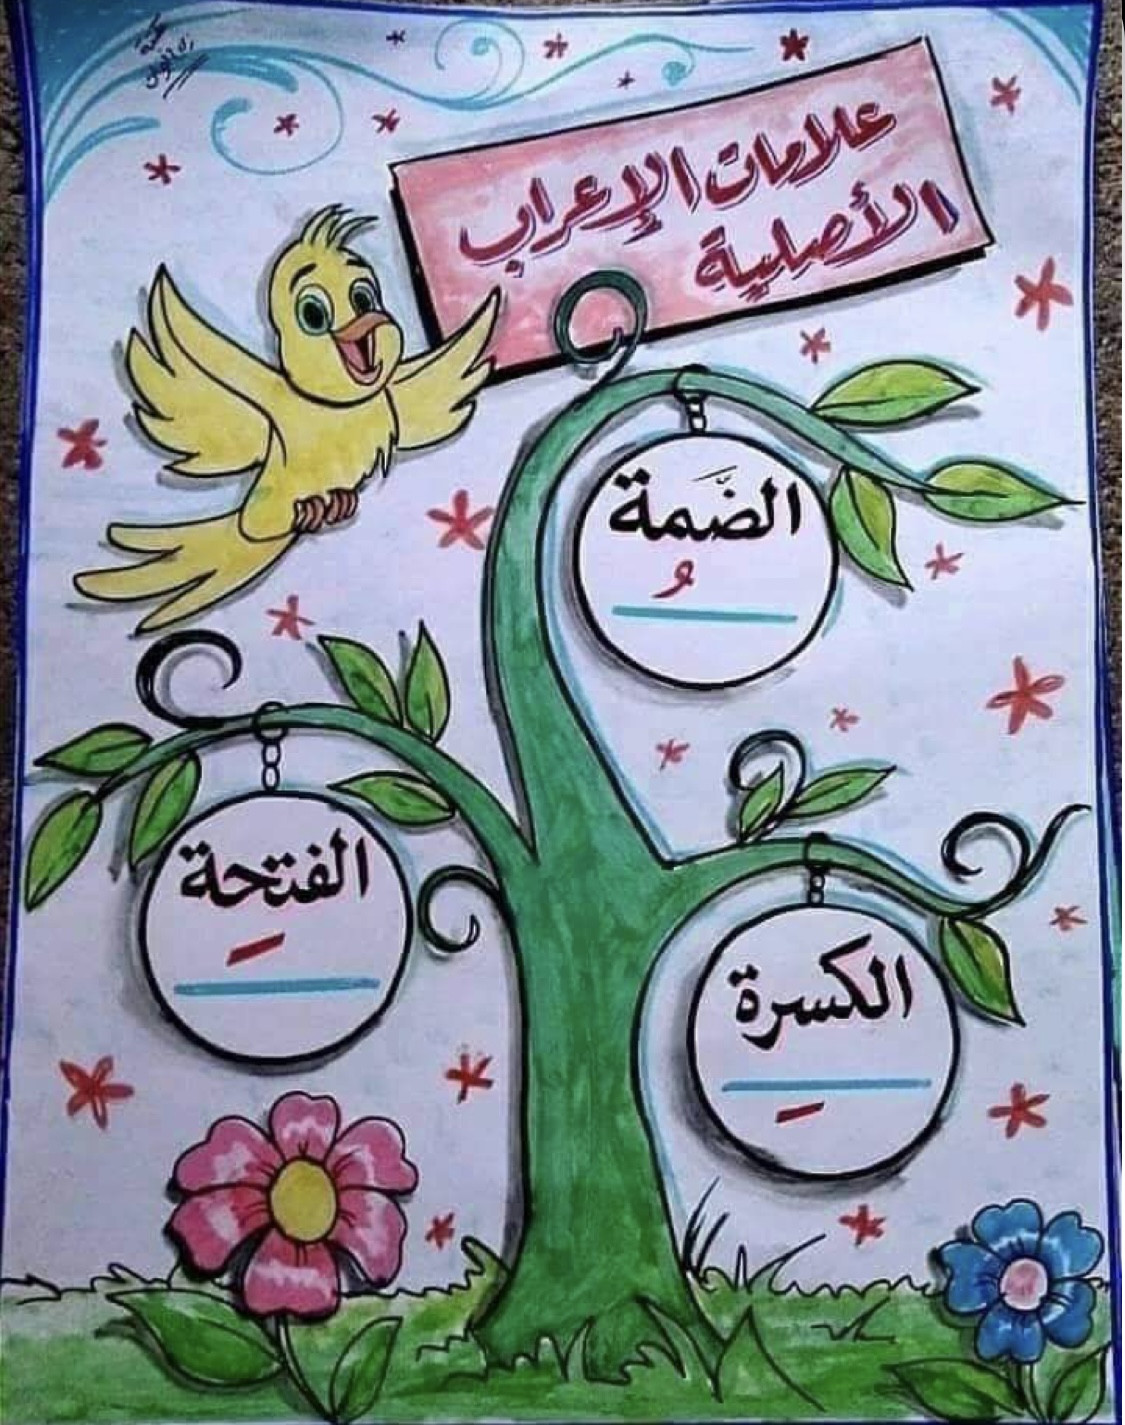 علامات الإعراب
الأصلية
الضَّمة
ُ
الفتحة
َ
الكسرة
ِ